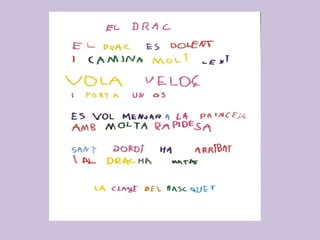 EL DRAC
EL DRAC ES DOLENT
I CAMINA MOLT LENT
VOLA VELOÇ
I PORTA UN OS
ES VOL MENJAR A LA PRINCESA
AMB MOLTA RAPIDESA
SANT JORDI HA ARRIBAT
I AL DRAC HA MATAT
LA CLASE DEL BASC QUET